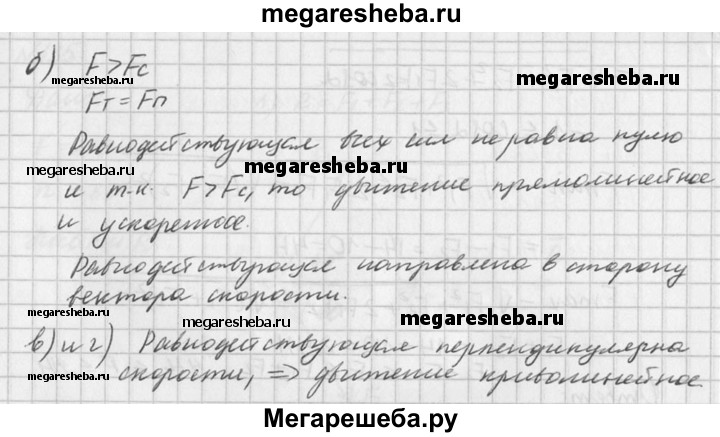 megaresheba.ru
б) F>Fс
megaresheba.ru
megaresheba.ru
Fт = Fп
Равнодействующая всех сил не равна нулю
megaresheba.ru
megaresheba.ru
и т.к. F>Fс, то движение прямолинейное
и ускоренное.
Равнодействующая направлена в сторону
вектора скорости.
megaresheba.ru
megaresheba.ru
в) и г) Равнодействующая перпендикулярна
megaresheba.ru
скорости, => движение криволинейное
Мегарешеба.ру